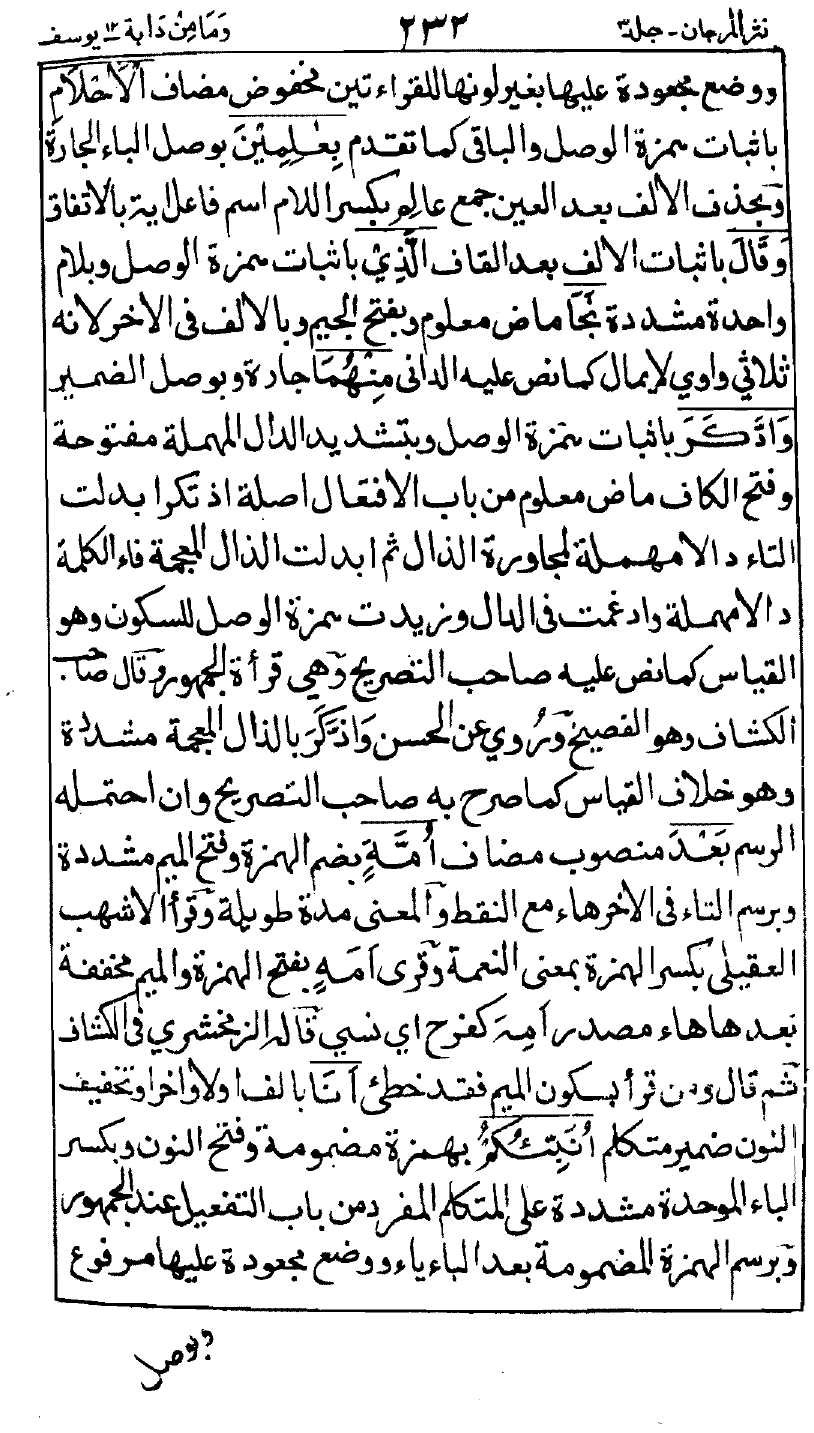 نثر المرجان - جلد ٣ ٢٣٢ وَمَا مِنْ دَابة ١٢ يوسف
ووضع مجعودة عليها بغير لونها للقراءتين مخفوض مضاف الْاَحْلَامِ
باثبات همزة الوصل والباقى كما تقدم بِعٰلِمِيْنَ بوصل الباء الجارة
وبحذف الالف بعد العين جمع عالم بكسر اللام اسم فاعل اية بالاتفاق
وَقَالَ باثبات الالف بعد القاف الَّذِيْ باثبات همزة الوصل وبلام
واحدة مشددة نَجَا ماض معلوم وبفتح الجيم وبالالف فى الاخر لانه
ثلاثي واوي لايمال كما نص عليه الدانى مِنْهُمَا جارة وبوصل الضمير
وَادَّكَرَ باثبات همزة الوصل وبتشديد الدال المهملة مفتوحة
وفتح الكاف ماض معلوم من باب الافتعال اصله اذتكر ابدلت
التاء دالا مهملة لمجاورة الذال ثم ابدلت الذال المعجمة فاء الكلمة
دالا مهملة وادغمت فى الدال وزيدت همزة الوصل للسكون وهو
القياس كما نص عليه صاحب التصريح وهي قرأة الجمهور وقال صاحب
الكشاف وهو الفصيح ورُوي عن الحسن وَاذَّكَرَ بالذال المعجمة مشددة
وهو خلاف القياس كما صرح به صاحب التصريح وان احتمله
الرسم بَعْدَ منصوب مضاف اُمَّةٍ بضم الهمزة وفتح الميم مشددة
وبرسم التاء فى الاخرهاء مع النقط والمعنى مدة طويلة وقرأ الاشهب
العقيلى بكسر الهمزة بمعنى النعمة وقرى اَمَهٍ بفتح الهمزة والميم مخففة
بعدها هاء مصدر اَمِهَ كفرح اي نسي قاله الزمخشري فى الكشاف
ثم قال ومن قرأ بسكون الميم فقد خطئ اَنَا بالف اولا واخرا وتخفيف
النون ضمير متكلم اُنَبِّئُكُمْ بهمزة مضمومة وفتح النون وبكسر
الباء الموحدة مشددة على المتكلم المفرد من باب التفعيل عند الجمهور
وبرسم الهمزة المضمومة بعد الباء ياء ووضع مجعودة عليها مرفوع
وبوصل